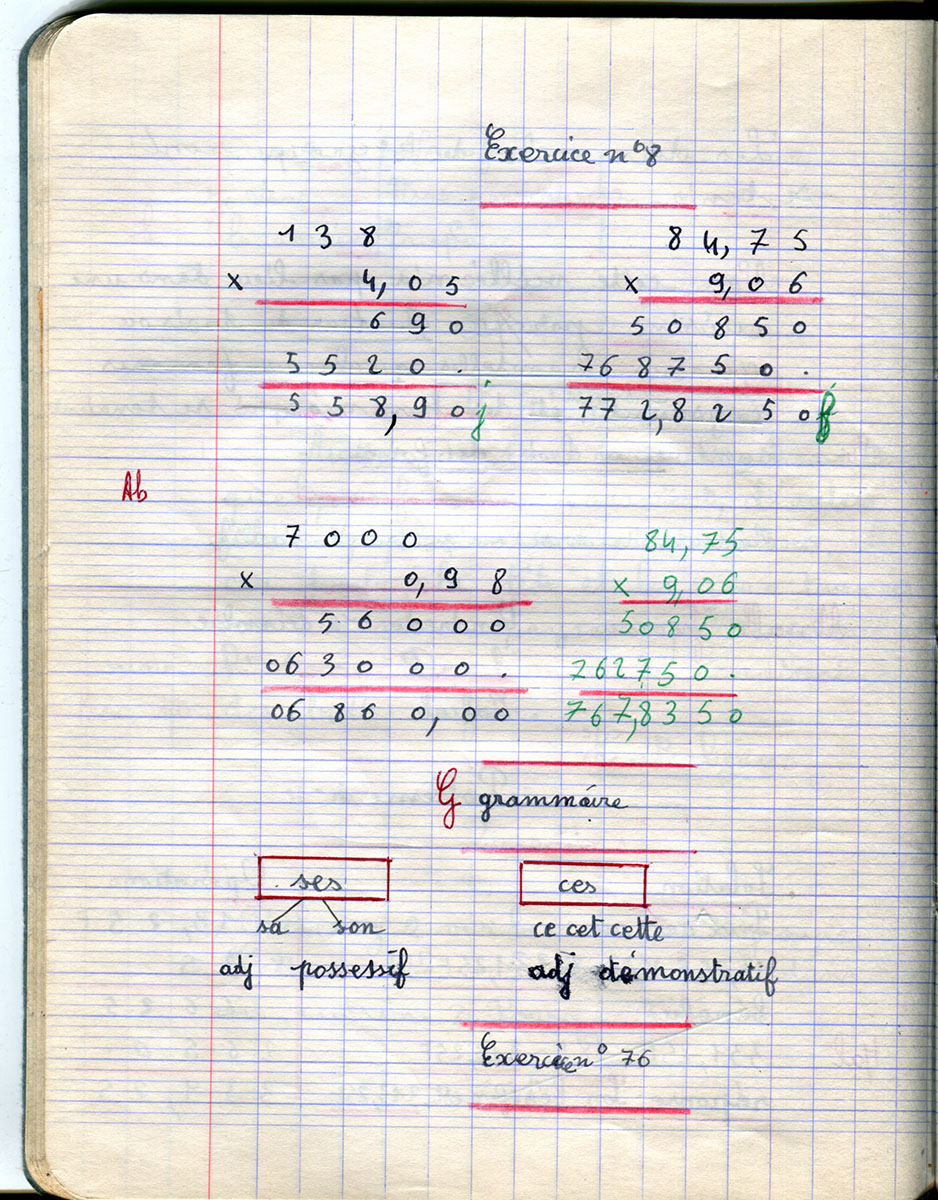 Exercice n° 8
1 3 8
x 4,05
6 9 0
5 5 2 0 .
5 5 8,9 0 j
8 4,7 5
x 9,0 6
5 0 8 5 0
7 6 8 7 5 0 .
7 7 2,8 2 5 0 f
Ab
7 0 0 0
x 0,9 8
5 6 0 0 0
0 6 3 0 0 0 .
0 6 8 6 0,0 0
84,75
x 9,06
50850
762750.
767,8350
G grammaire
ses
sa son
adj possessif
ces
ce cet cette
adj démonstratif
Exercice n° 76